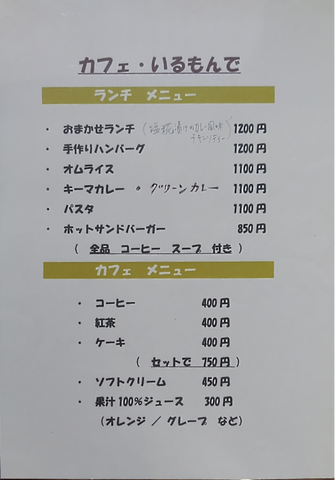 カフェ・いるもんで
ランチ メニュー
・ おまかせランチ ( 塩糀漬けのカレー風味 チキンソティー ) 1200円
・ 手作りハンバーグ 1200円
・ オムライス 1100円
・ キーマカレー ・グリーンカレー 1100円
・ パスタ 1100円
・ ホットサンドバーガー 850円
( 全品 コーヒー スープ 付き )
カフェ メニュー
・ コーヒー 400円
・ 紅茶 400円
・ ケーキ 400円
( セットで 750円 )
・ ソフトクリーム 450円
・ 果汁100%ジュース 300円
(オレンジ / グレープ など)